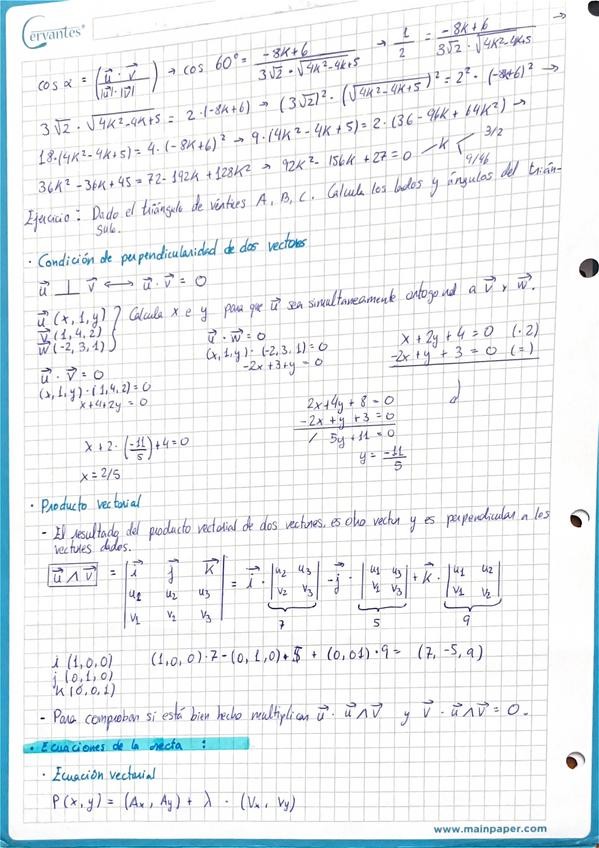 Cervantes
cos α = (u⃗ · v⃗ / |u⃗|·|v⃗|) → cos 60° = -8K+6 / 3√2 · √4K²-4K+5 → 1/2 = -8K+6 / 3√2 · √4K²-4K+5 →
3√2 · √4K²-4K+5 = 2·(-8K+6) → (3√2)² · (√4K²-4K+5)² = 2² · (-8K+6)² →
18·(4K²-4K+5) = 4·(-8K+6)² → 9·(4K²-4K+5) = 2·(36-96K+64K²) →
36K²-36K+45 = 72-192K+128K² → 92K²-156K+27 = 0 → K < 3/2
9/46
Ejercicio: Dado el triángulo de vértices A, B, C. Calcula los lados y ángulos del trián-
gulo.
· Condición de perpendicularidad de dos vectores
u⃗ ⊥ v⃗ ⟷ u⃗ · v⃗ = 0
u⃗ (x, 1, y) } Calcula x e y para que u⃗ sea simultaneamente ortogonal a v⃗ y w⃗.
v⃗ (1, 4, 2)
w⃗ (-2, 3, 1)
u⃗ · v⃗ = 0
(x, 1, y)·(1, 4, 2) = 0
x+4+2y = 0
u⃗ · w⃗ = 0
(x, 1, y)·(-2, 3, 1) = 0
-2x+3+y = 0
x + 2y + 4 = 0 (·2)
-2x + y + 3 = 0 (=)
2x+4y+8 = 0
-2x+y+3 = 0
/ 5y+11 = 0
y = -11/5
x + 2·(-11/5) + 4 = 0
x = 2/5
· Producto vectorial
- El resultado del producto vectorial de dos vectores, es otro vector y es perpendicular a los
vectores dados.
u⃗ ∧ v⃗ = | i⃗ j⃗ k⃗ | = i⃗ · | u₂ u₃ | - j⃗ · | u₁ u₃ | + k⃗ · | u₁ u₂ |
u₁ u₂ u₃ v₂ v₃ v₁ v₃ v₁ v₂
v₁ v₂ v₃ 7 5 9
i (1, 0, 0) (1, 0, 0)·7 - (0, 1, 0)·5 + (0, 0 1)·9 = (7, -5, 9)
j (0, 1, 0)
k (0, 0, 1)
- Para comprobar si está bien hecho multiplicar u⃗ · u⃗ ∧ v⃗ y v⃗ · u⃗ ∧ v⃗ = 0.
· Ecuaciones de la recta :
· Ecuación vectorial
P (x, y) = (Ax, Ay) + λ · (Vx, Vy)
www.mainpaper.com